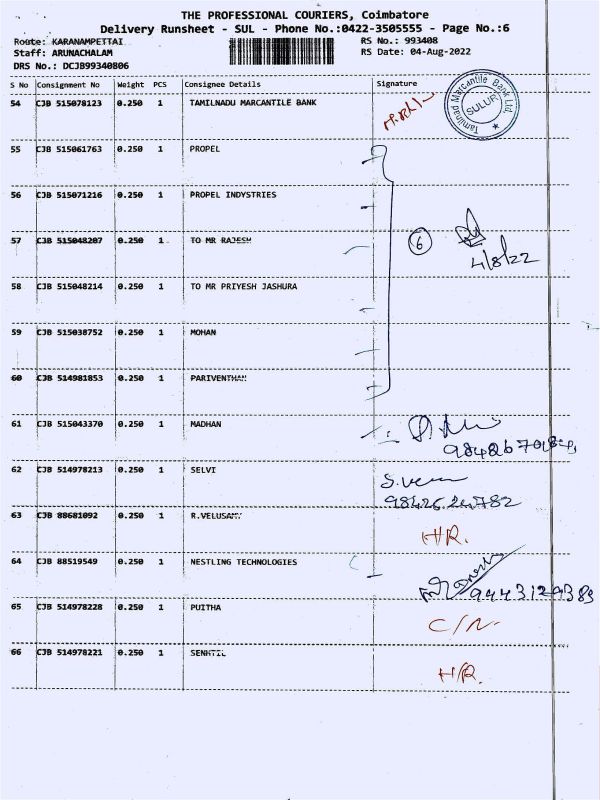 THE PROFESSIONAL COURIERS, Coimbatore
Delivery Runsheet - SUL - Phone No.:0422-3505555 - Page No.:6
Route: KARANAMPETTAI RS No.: 993408
Staff: ARUNACHALAM RS Date: 04-Aug-2022
DRS No.: DCJB99340806
S No Consignment No Weight PCS Consignee Details Signature
54 CJB 515078123 0.250 1 TAMILNADU MARCANTILE BANK
Tamilnad Mercantile Bank Ltd. SULUR
55 CJB 515061763 0.250 1 PROPEL
56 CJB 515071216 0.250 1 PROPEL INDYSTRIES
57 CJB 515048207 0.250 1 TO MR RAJESH 6
4/8/22
58 CJB 515048214 0.250 1 TO MR PRIYESH JASHURA
59 CJB 515038752 0.250 1 MOHAN
60 CJB 514981853 0.250 1 PARIVENTHAN
61 CJB 515043370 0.250 1 MADHAN
62 CJB 514978213 0.250 1 SELVI
63 CJB 88681092 0.250 1 R.VELUSAMY H/R.
64 CJB 88519549 0.250 1 NESTLING TECHNOLOGIES
9443129389
65 CJB 514978228 0.250 1 PUITHA C/N
66 CJB 514978221 0.250 1 SENHTIL H/R.